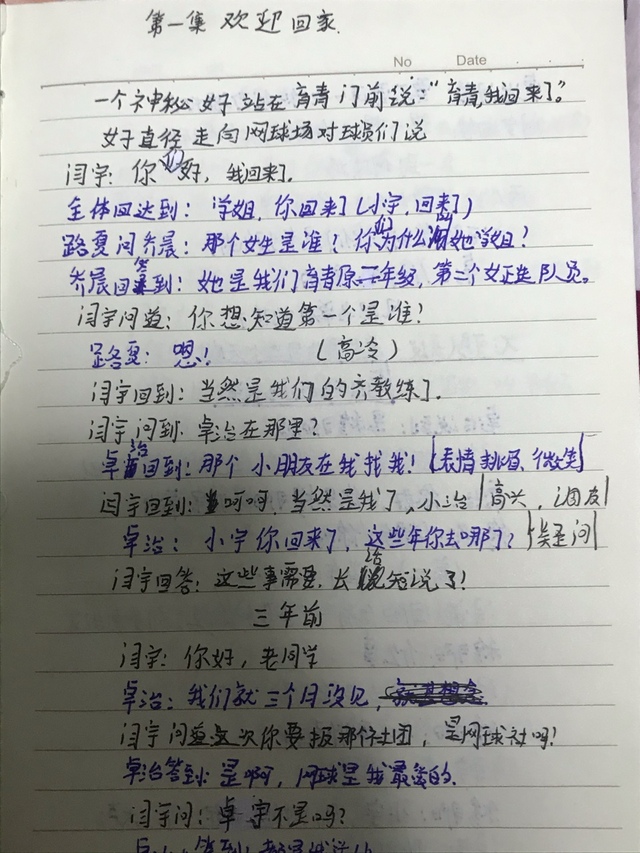 第一集 欢迎回家.
No Date
一个神秘女子站在育青门前说:“育青,我回来了”。
女子直径走向网球场对球员们说
闫宇:你们好,我回来了.
全体回达到:学姐,你回来了(小宇,回来了)
路夏问乔晨:那个女生是谁?你们为什么叫她学姐?
乔晨回答到:她是我们育青原二年级,第二个女正选队员。
闫宇问道:你想知道第一个是谁?
路夏:嗯! (高冷)
闫宇回到:当然是我们的齐教练了.
闫宇问到:卓治在那里?
卓治回到:那个小朋友在我找我!(表情挑眉、微笑)
闫宇回到:呵呵,当然是我了,小治(高兴,调皮)
卓治:小宇你回来了,这些年你去哪了?(疑问)
闫宇回答:这些事需要,长话短说了!
三年前
闫宇:你好,老同学
卓治:我们就三个月没见,
闫宇问道这次你要报那个社团,是网球社吗?
卓治答到:是啊,网球是我最爱的.
闫宇问:卓宇不是吗?